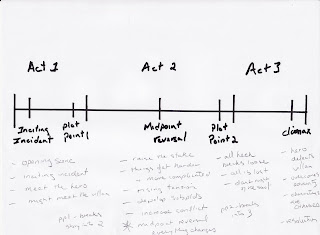 Act 1
Act 2
Act 3
Inciting Incident
Plot Point 1
Midpoint reversal
Plot Point 2
climax
- opening scene
- inciting incident
- meet the hero
- might meet the villain
pp1 - breaks
into 2
- raise the stakes
- things get harder
more complicated
- rising tension
- develop subplots
- increase conflict
* midpoint reversal
everything changes
- all heck
breaks loose
- all is lost
- dark moment
pp2 - breaks
into 3
- hero
defeats
villain
- resolution